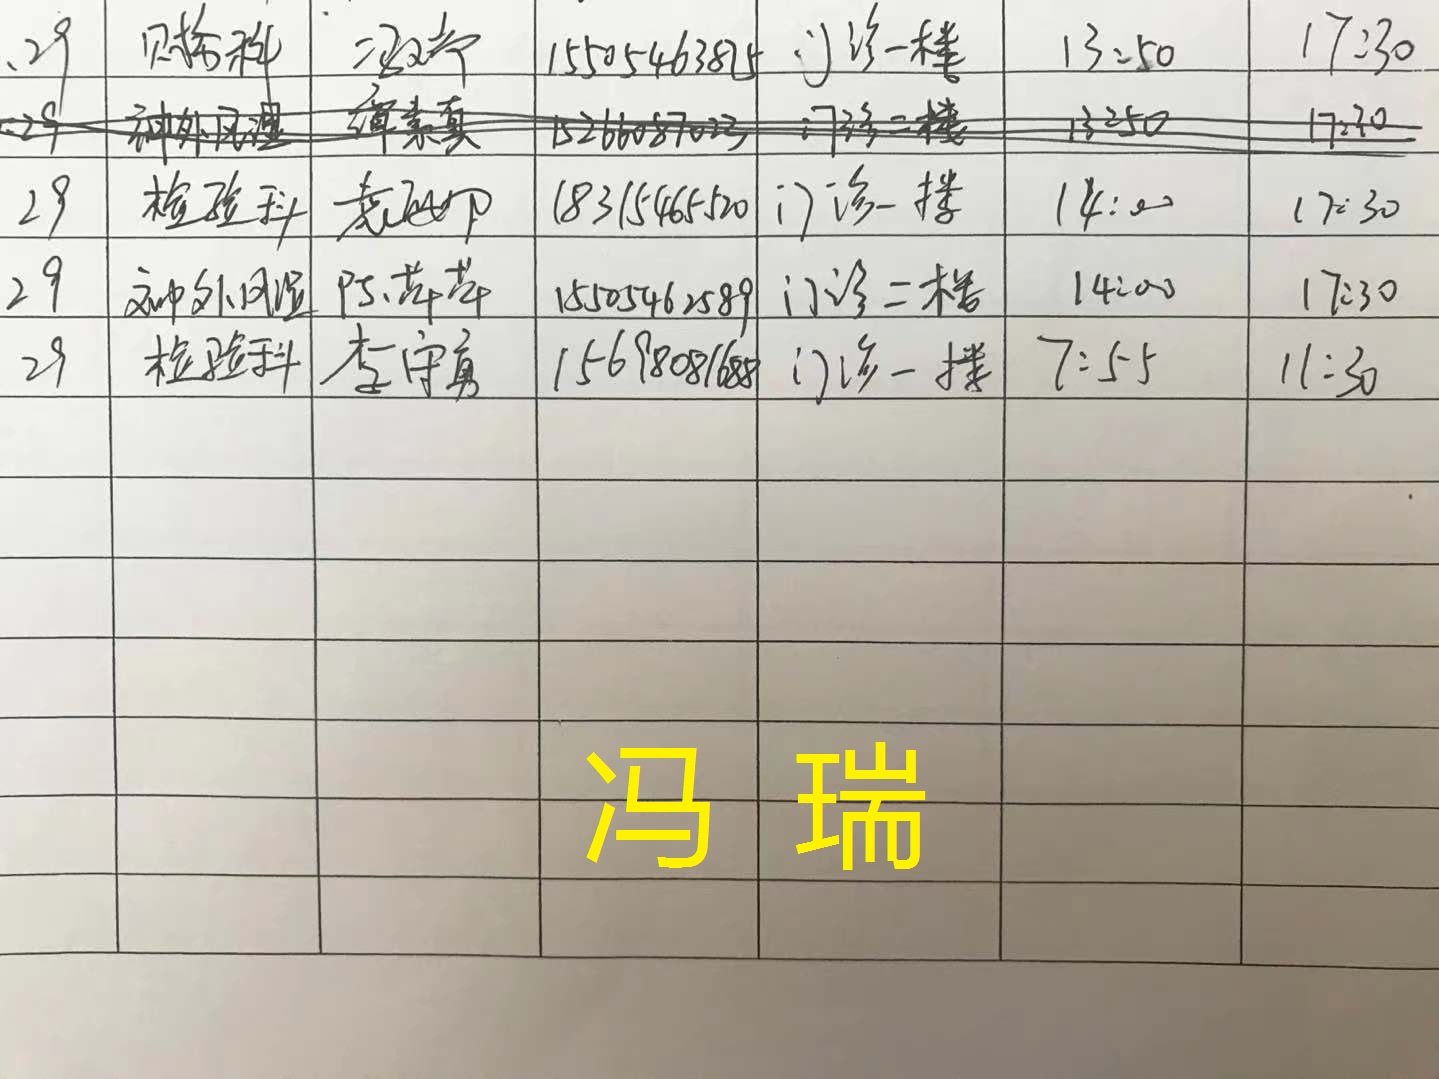 .29 15505463825 门诊一楼 13:50 17:30
.29 神外风湿 真 15266087023 门诊二楼 13:50 17:30
29 检验科 袁 18315465520 门诊一楼 14:00 17:30
29 神外风湿 陈苹苹 15505462589 门诊二楼 14:00 17:30
29 检验科 李守勇 15698081688 门诊一楼 7:55 11:30
冯 瑞